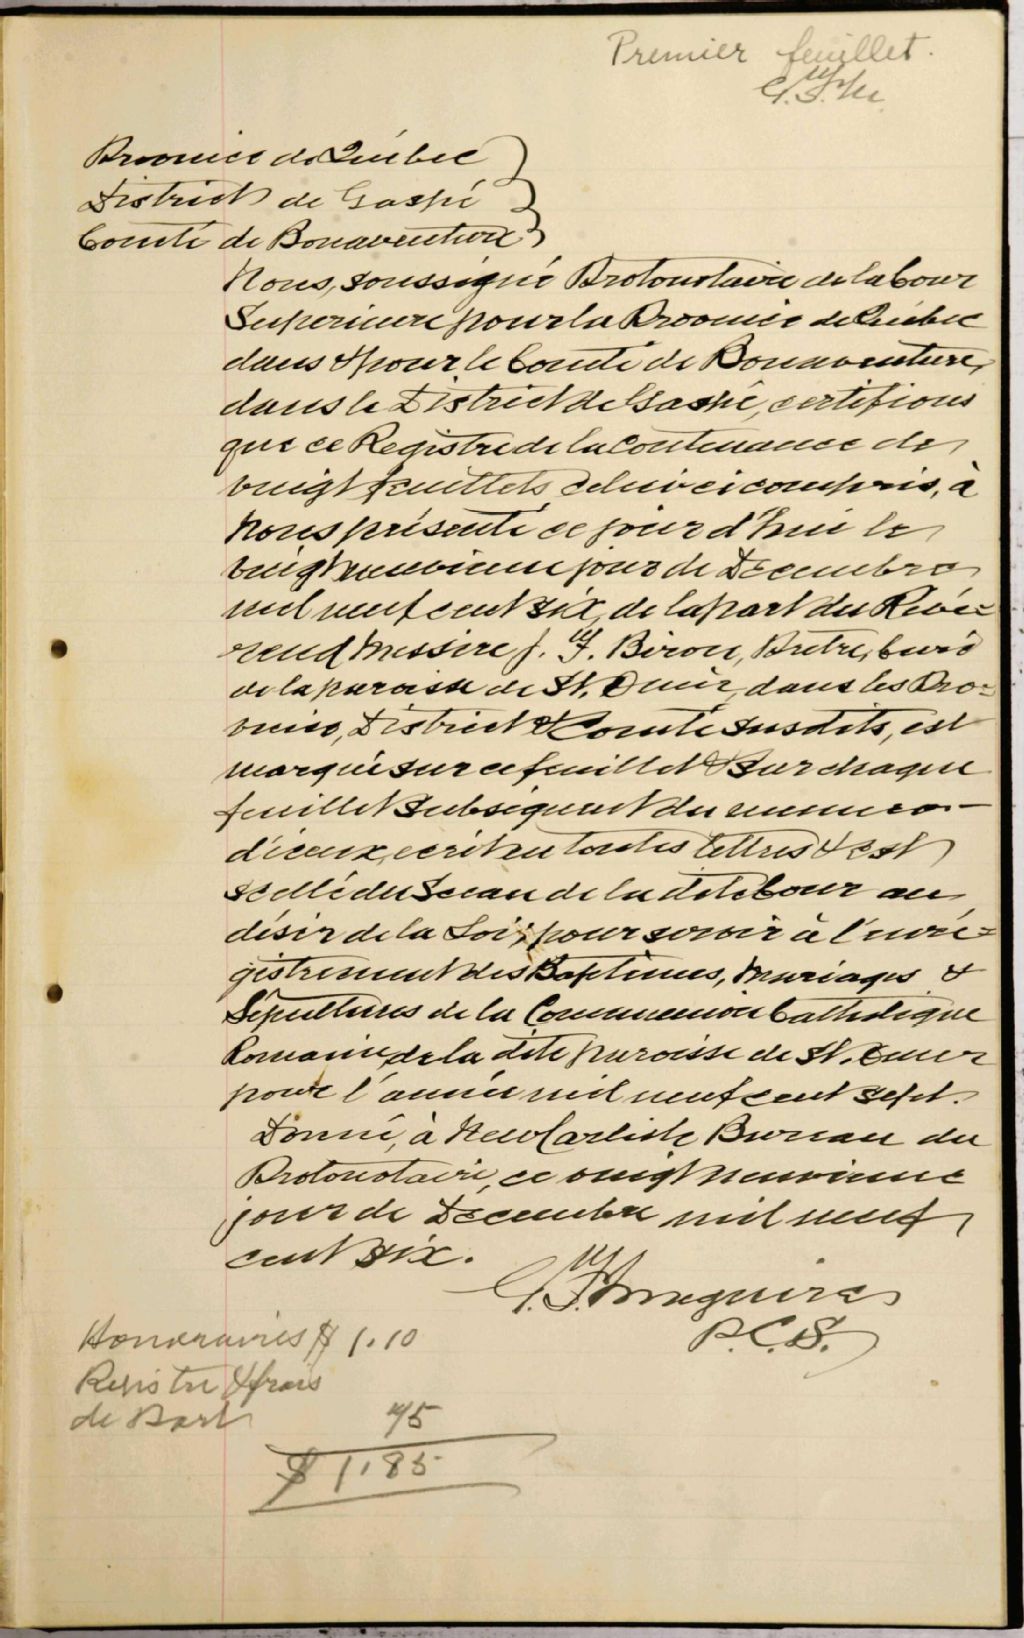 Premier feuillet.
Province de Québec
District de Gaspé
Comté de Bonaventure
Nous, soussigné Protonotaire de la Cour
Superieure pour la Province de Québec
dans & pour le Comté de Bonaventure,
dans le District de Gaspé, certifions
que ce Registre de la Contenance de
vingt feuillets, celui ci compris, à
Nous présenté ce jour d'hui le
vingt neuvieme jour de Decembre
mil neuf cent six, de la part du Révé=
rend Messire J. Bte. Biron, Prêtre, Curé
de la paroisse de St. Omer, dans les Pro=
vince, District & Comté susdits, est
marqué sur ce feuillet & sur chaque
feuillet subséquent du numero
d'iceux, ecrit en toutes lettres & est
scellé du Sceau de la dite Cour au
désir de la Loi, pour servir à l'enré=
gistrement des Baptêmes, Mariages &
Sépultures de la Communion Catholique
Romaine de la dite paroisse de St. Omer
pour l'année mil neuf cent sept.
Donné, à New Carlisle Bureau du
Protonotaire, ce vingt neuvieme
jour de Decembre mil neuf
cent six.
P.C.S.
Honoraires $ 1.10
Registre & frais
de Port 75
$ 1.85